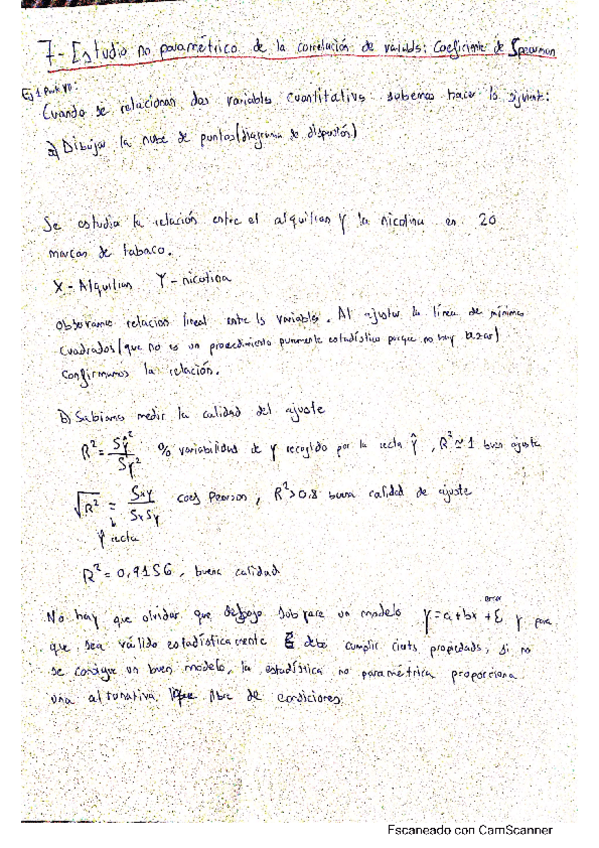 7- Estudio no paramétrico de la correlación de variables: Coeficiente de Spearman
Ej 1
Cuando se relacionan dos variables cuantitativas sabemos hacer lo siguiente:
a) Dibujar la nube de puntos (diagrama de dispersión)
Se estudia la relación entre el alquitran y la nicotina en 20
marcas de tabaco.
X - Alquitran Y - nicotina
Observamos relacion lineal entre ls variables. Al ajustar la línea de mínimos
cuadrados (que no es un procedimiento puramente estadístico porque no hay azar)
confirmamos la relación.
b) Sabiamos medir la calidad del ajuste
R² = Sŷ²/Sy² % variabilidad de y recogido por la recta ŷ, R² ≃ 1 buen ajuste
√R² = Sxy/SxSy coef Pearson, R²>0.8 buena calidad de ajuste
y recta
R² = 0,9156, buena calidad
error
No hay que olvidar que debajo subyace un modelo Y=a+bx+ε y para
que sea válido estadísticamente debe cumplir ciertas propiedades, si no
se consigue un buen modelo, la estadística no paramétrica proporciona
una alternativa libre de condiciones.
Escaneado con CamScanner